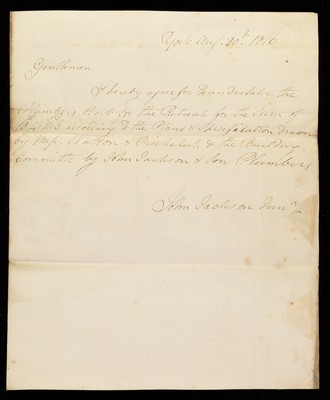 York Aug. 20th 1816
Gentlemen
I hereby agree to undertake the
Plumbers Work for the Retreat for the Sum of
according to the Plans & Specification drawn
by Messrs Watson & Pritchett & the Building
Committe by John Jackson & Son Plumbers
John Jackson Junr